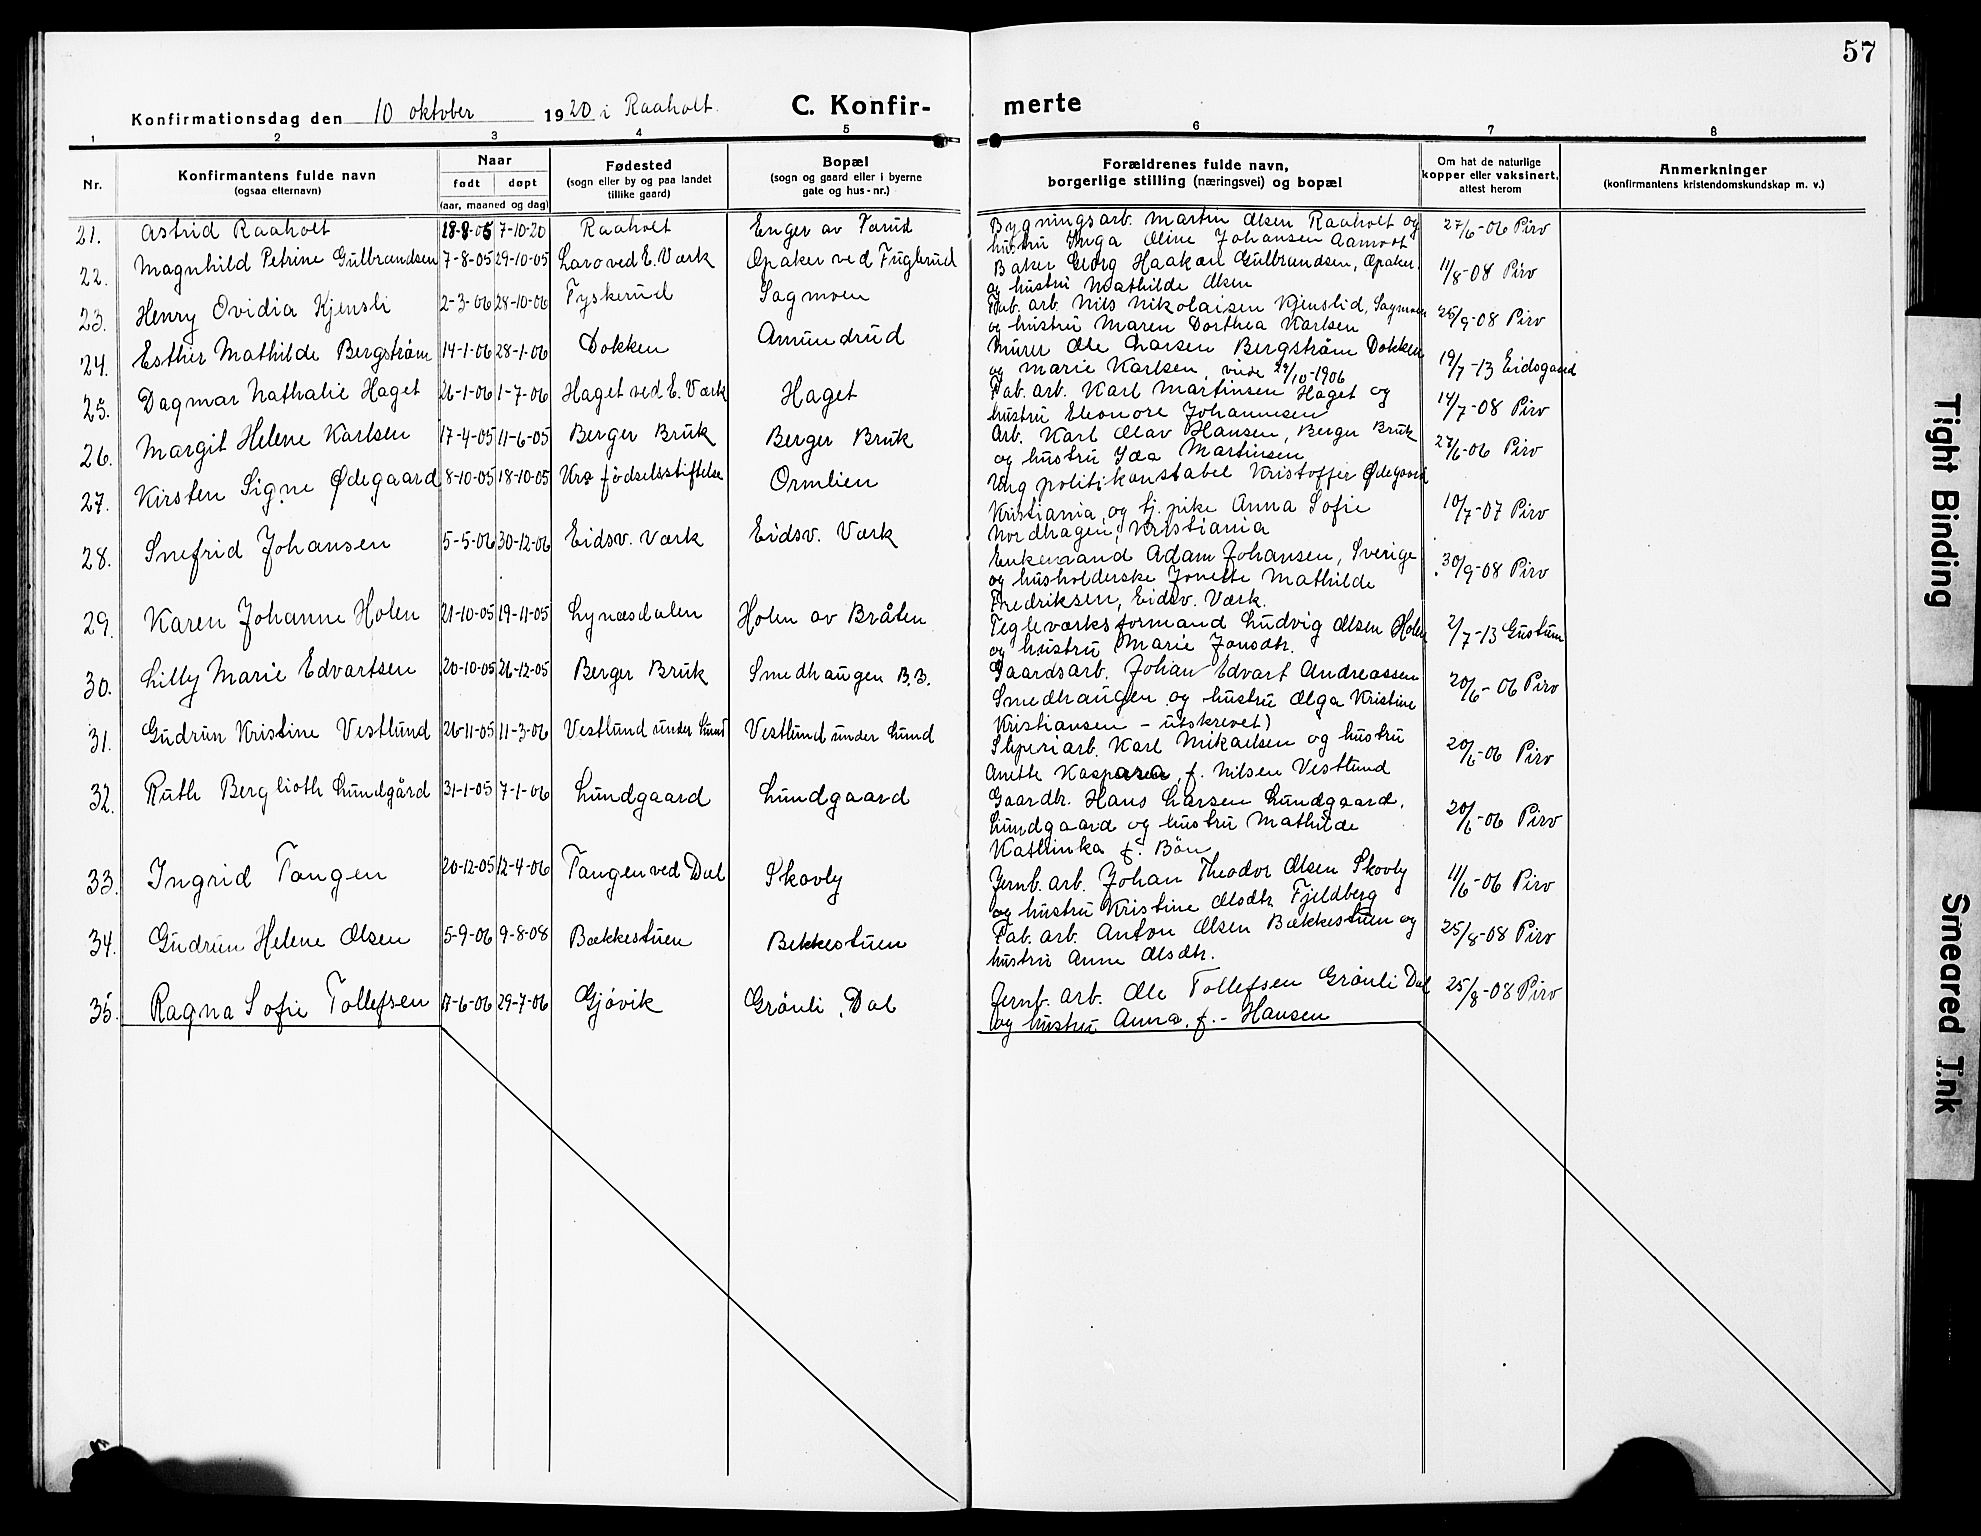 57
Konfirmationsdag den 10 oktober 1920 i Raaholt. C. Konfir-merte
1 2 3 4 5 6 7 8
Nr.
Konfirmantens fulde navn
(ogsaa efternavn)
Naar
født døpt
(aar, maaned og dag)
Fødested
(sogn eller by og paa landet
tillike gaard)
Bopæl
(sogn og gaard eller i byerne
gate og hus-nr.)
Forældrenes fulde navn,
borgerlige stilling (næringsvei) og bopæl
Om hat de naturlige
kopper eller vaksinert,
attest herom
Anmerkninger
(konfirmantens kristendomskundskap m. v.)
21. Astrid Raaholt 18-8-05 7-10-20 Raaholt Enger av Farud Bygningsarb. Martin Olsen Raaholt og 27/6-06 Pirv
hustru Inga Oline Johansen Aamodt
22. Magnhild Petrine Gulbrandsen 7-8-05 29-10-05 Laro ved E. Værk Opaker ved Fuglerud Baker Georg Haakon Gulbrandsen, Opaker. 11/8-08 Pirv
og hustru Mathilde Olsen
23. Henry Ovidia Kjensli 2-3-06 28-10-06 Tyskerud Sagmoen Fab. arb. Nils Nikolaisen Kjenslid, Sagmoen 25/9-08 Pirv
og hustru Maren Dorthea Karlsen
24. Esther Mathilde Bergstrøm 14-1-06 28-1-06 Dokken Amundrud Murer Ole Larsen Bergstrøm Dokken 19/7-13 Eidsgaard
og Marie Karlsen, viede 29/10-1906
25. Dagmar Nathalie Haget 26-1-06 1-7-06 Haget ved E. Værk Haget Fab. arb. Karl Martinsen Haget og 14/7-08 Pirv
hustru Eleonore Johannesen
26. Margit Helene Karlsen 17-4-05 11-6-05 Berger Bruk Berger Bruk Arb. Karl Olav Hansen, Berger Bruk 27/6-06 Pirv
og hustru Ida Martinsen
27. Kirsten Signe Ødegaard 8-10-05 18-10-05 Kra fødselsstiftelse Ormlien Ung. politikonstabel Kristoffer Ødegaard
Kristiania, og tj. pike Anna Sofie 10/7-07 Pirv
Nordhagen, Kristiania
28. Snefrid Johansen 5-5-06 30-12-06 Eidsv. Værk Eidsv. Værk Enkemand Adam Johansen, Sverige 30/9-08 Pirv
og husholderske Jonette Mathilde
Fredriksen, Eidsv. Værk.
29. Karen Johanne Holen 21-10-05 19-11-05 Lynæsdalen Holen av Bråten Tegleværksformand Ludvig Olsen Holen 2/7-13 Gustum
og hustru Marie Jonsdtr.
30. Lilly Marie Edvartsen 20-10-05 26-12-05 Berger Bruk Smedhaugen B.B. Gaardsarb. Johan Edvart Andreassen 20/6-06 Pirv
Smedhaugen og hustru Olga Kristine
Kristiansen - utskrevet)
31. Gudrun Kristine Vestlund 26-11-05 11-3-06 Vestlund under Lund Vestlund under Lund Sliperiarb. Karl Mikaelsen og hustru 20/6-06 Pirv
Anette Kaspara, f. Nilsen Vestlund
32. Ruth Berglioth Lundgård 31-1-05 7-1-06 Lundgaard Lundgaard Gaardbr. Hans Larsen Lundgaard, 20/6-06 Pirv
Lundgaard og hustru Mathilde
Kathinka f. Bøn
33. Ingrid Tangen 20-12-05 12-4-06 Tangen ved Dal Skovly Jernb. arb. Johan Theodor Olsen Skovly 11/6-06 Pirv
og hustru Kristine Olsdtr. Fjeldberg
34. Gudrun Helene Olsen 5-9-06 9-8-08 Bækkestuen Bekkestuen Fab. arb. Anton Olsen Bækkestuen og 25/8-08 Pirv
hustru Anne Olsdtr.
35. Ragna Sofie Tollefsen 17-6-06 29-7-06 Gjøvik Grønli, Dal Jernb. arb. Ole Tollefsen Grønli Dal 25/8-08 Pirv
og hustru Anna, f. - Hansen
Tight Binding
Smeared Ink